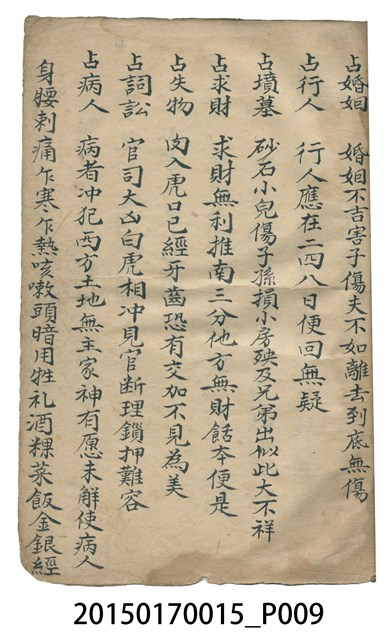 占婚姻 婚姻不吉害子傷夫不如離去到底無傷
占行人 行人應在二四八日便回無疑
占墳墓 砂石小兒傷子孫損小房殃及兄弟出似此大不祥
占求財 求財無利推南三分他方無財餂本便是
占失物 肉入虎口已經牙齒恐有交加不見為美
占詞訟 官司大凶白虎相冲見官断理鎖押難容
占病人 病者冲犯西方土地無主家神有愿未解使病人
身腰刺痛乍寒乍熱咳嗽頭暗用牲礼酒粿菜飯金銀經
20150170015_P009